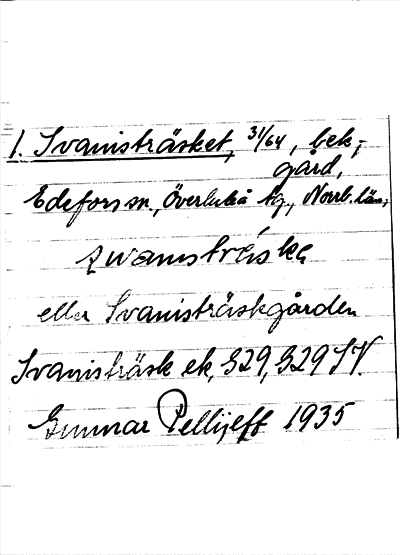 1. Svanisträsket, 31/64, bek,-
gård,
Edefors sn., Överluleå tg., Norrb. län,
svanstráska
eller Svanisträskgården
Svanisträsk ek, 329, 329 SV.
Gunnar Pellijeff 1935